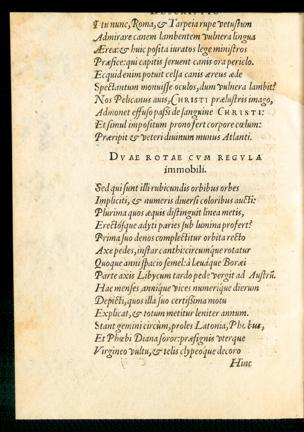 DESCRIPTIO
I tu nunc, Roma, & Tarpeia rupe vetustum
Admirare canem lambentem vulnera lingua
Ærea: & huic posita iuratos lege ministros
Præfice: qui capitis seruent canis ora periclo.
Ecquid enim potuit celsa canis æreus æde
Spectantum monuisse oculos, dum vulnera lambit?
Nos Pelicanus auis, CHRISTI prælustris imago,
Admonet effuso passi de sanguine CHRISTI:
Et simul impositum prono fert corpore cœlum:
Præripit & veteri diuinum munus Atlanti.
DVAE ROTAE CVM REGVLA
immobili.
Sed qui sunt illi rubicundis orbibus orbes
Impliciti, & numeris diuersi coloribus aucti:
Plurima quos æquis distinguit linea metis,
Erectósque adyti partes sub lumina profert?
Prima suo denos complectitur orbita recto
Axe pedes, instar canthi: circúmque rotatur
Quoque anni spacio semel: à leuáque Boræi
Parte axis Libycum tardo pede vergit ad Austrũ.
Hac menses annique vices numerique dierum
Depicti, quos illa suo certissima motu
Explicat, & totum metitur leniter annum.
Stant gemini circùm, proles Latonia, Phœbus,
Et Phœbi Diana soror: præsignis vterque
Virgineo vultu, & telis clypeoque decoro
Hinc